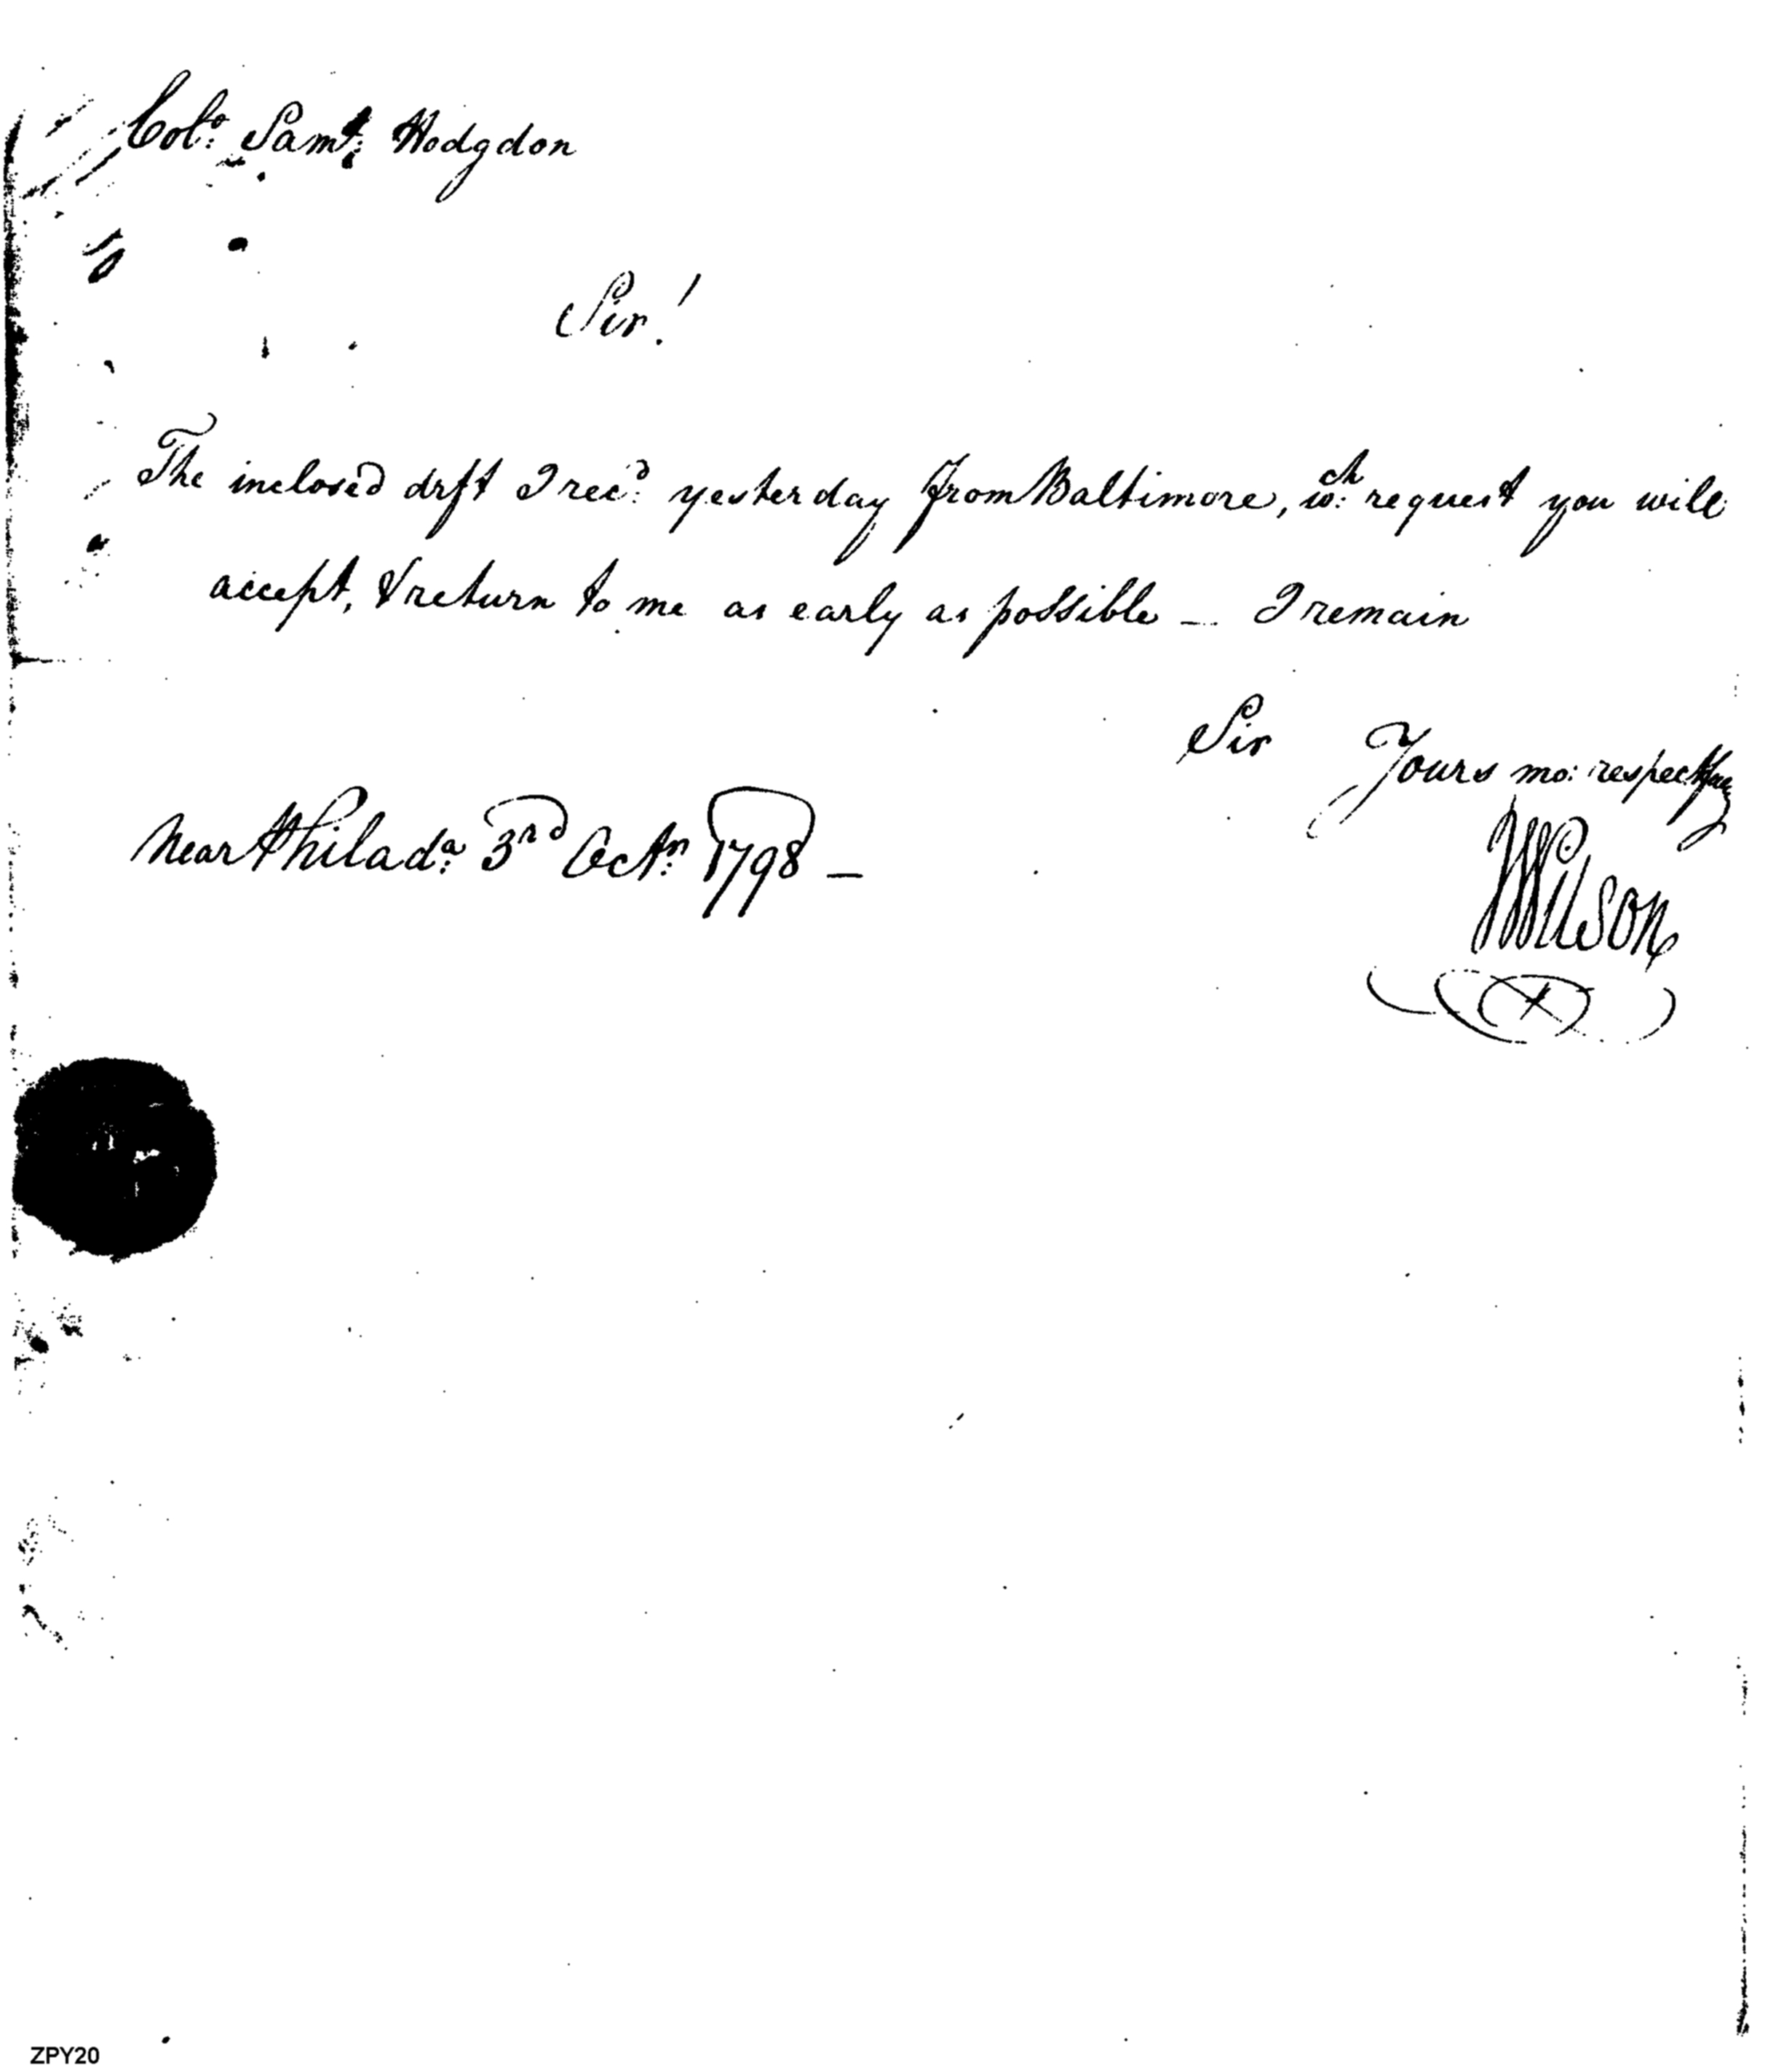 Colo: Saml: Hodgdon
Sir!
The inclosed drft I recd: yesterday from Baltimore, wch: request you will
accept, & return to me as early as possible — I remain
Sir Yours mo: respectfully
Near Philada: 3rd Octr: 1798 —
Wilson
ZPY20